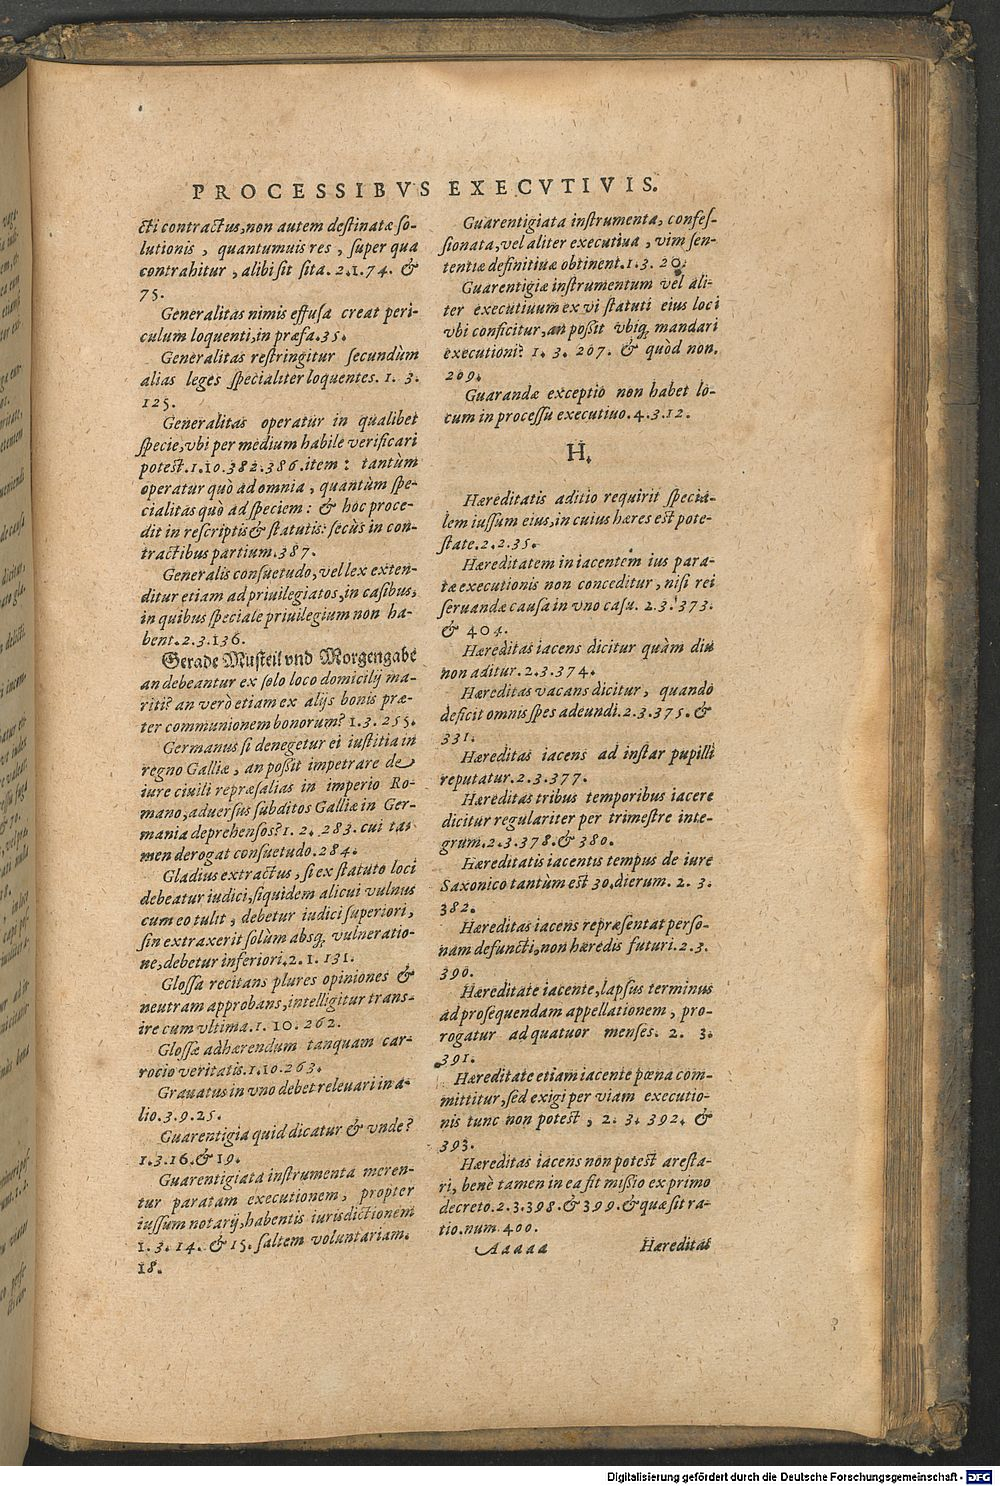 PROCESSIBVS EXECVTIVIS.
cti contractus, non autem destinatæ so-
lutionis, quantumuis res, super qua
contrahitur, alibi sit sita. 2.1.74. &
75.
Generalitas nimis effusa creat peri-
culum loquenti, in præfa. 35.
Generalitas restringitur secundùm
alias leges specialiter loquentes. 1. 3.
125.
Generalitas operatur in qualibet
specie, vbi per medium habile verificari
potest. 1.10.382.386. item: tantùm
operatur quò ad omnia, quantùm spe-
cialitas quò ad speciem: & hoc proce-
dit in rescriptis & statutis: secùs in con-
tractibus partium. 387.
Generalis consuetudo, vel lex exten-
ditur etiam ad priuilegiatos, in casibus,
in quibus speciale priuilegium non ha-
bent. 2.3.136.
Gerade Musteil vnd Morgengabe
an debeantur ex solo loco domicilij ma-
riti? an verò etiam ex alijs bonis præ-
ter communionem bonorum? 1.3.255.
Germanus si denegetur ei iustitia in
regno Galliæ, an poßit impetrare de
iure ciuili repræsalias in imperio Ro-
mano, aduersus subditos Galliæ in Ger-
mania deprehensos? 1. 2. 283. cui ta-
men derogat consuetudo. 284.
Gladius extractus, si ex statuto loci
debeatur iudici, siquidem alicui vulnus
cum eo tulit, debetur iudici superiori,
sin extraxerit solùm absq; vulneratio-
ne, debetur inferiori. 2.1.131.
Glossa recitans plures opiniones &
neutram approbans, intelligitur trans-
ire cum vltima. 1. 10. 262.
Glossæ adhærendum tanquam car-
rocio veritatis. 1.10.263.
Grauatus in vno debet releuari in a-
lio. 3.9.25.
Guarentigia quid dicatur & vnde?
1.3.16. & 19.
Guarentigiata instrumenta meren-
tur paratam executionem, propter
iussum notarij, habentis iurisdictionem
1. 3. 14. & 15. saltem voluntariam.
18.
Guarentigiata instrumenta, confes-
sionata, vel aliter executiua, vim sen-
tentiæ definitiuæ obtinent. 1.3. 20.
Guarentigiæ instrumentum vel ali-
ter executiuum ex vi statuti eius loci
vbi conficitur, an poßit vbiq; mandari
executioni? 1. 3. 207. & quòd non.
209.
Guarandæ exceptio non habet lo-
cum in processu executiuo. 4.3.12.
H.
Hæreditatis aditio requirit specia-
lem iussum eius, in cuius hæres est pote-
state. 2.2.35.
Hæreditatem in iacentem ius para-
tæ executionis non conceditur, nisi rei
seruandæ causa in vno casu. 2.3.373.
& 404.
Hæreditas iacens dicitur quàm diu
non aditur. 2.3.374.
Hæreditas vacans dicitur, quando
deficit omnis spes adeundi. 2.3.375. &
331.
Hæreditas iacens ad instar pupilli
reputatur. 2.3.377.
Hæreditas tribus temporibus iacere
dicitur regulariter per trimestre inte-
grum. 2.3.378. & 380.
Hæreditatis iacentis tempus de iure
Saxonico tantùm est 30. dierum. 2. 3.
382.
Hæreditas iacens repræsentat perso-
nam defuncti, non hæredis futuri. 2.3.
390.
Hæreditate iacente, lapsus terminus
ad prosequendam appellationem, pro-
rogatur ad quatuor menses. 2. 3.
391.
Hæreditate etiam iacente pœna com-
mittitur, sed exigi per viam executio-
nis tunc non potest, 2. 3. 392. &
393.
Hæreditas iacens non potest aresta-
ri, benè tamen in ea fit mißio ex primo
decreto. 2.3.398. & 399. & quæ sit ra-
tio. num. 400.
Aaaaa Hæreditas
Digitalisierung gefördert durch die Deutsche Forschungsgemeinschaft - DFG